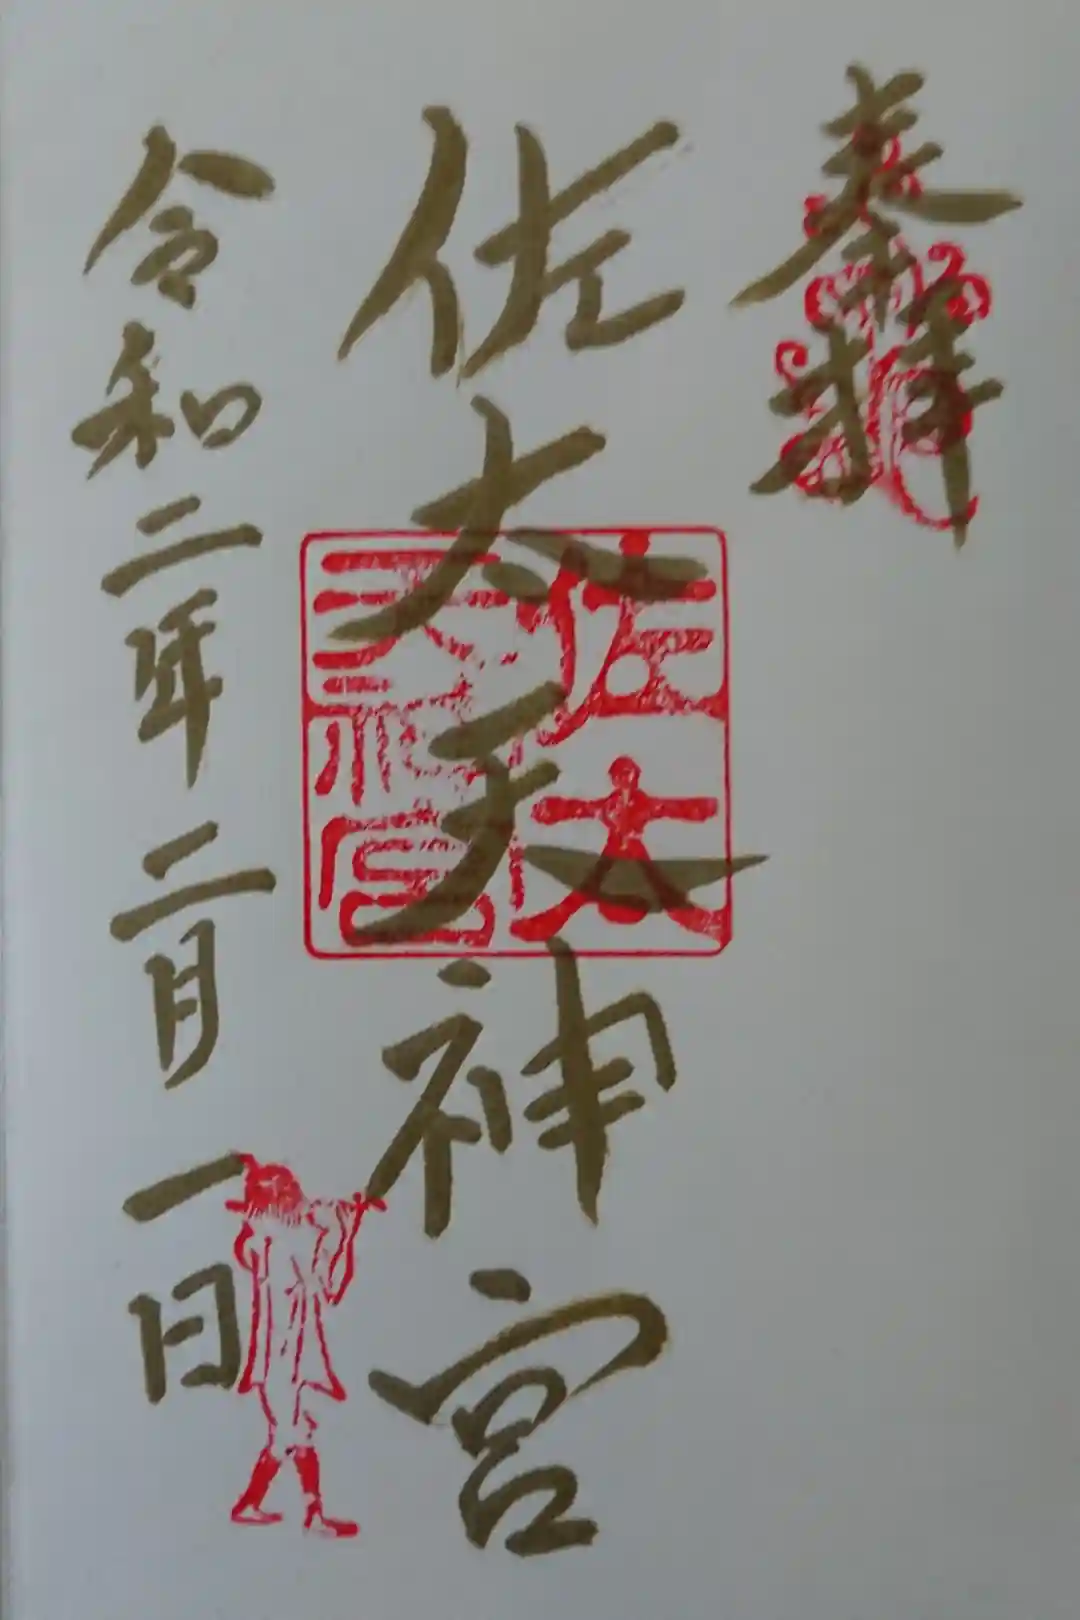 奉拝
佐太天神宮
佐太
天神宮
令和二年二月一日